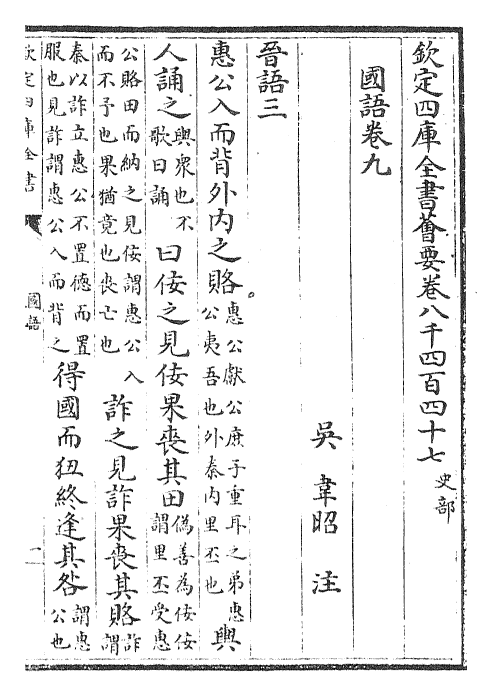 欽定四庫全書薈要卷八千四百四十七 史部
國語卷九
吳 韋昭 注
晉語三
惠公入而背外内之賂。惠公獻公庶子重耳之弟惠公夷吾也外秦内里丕也輿
人誦之輿衆也不歌曰誦曰佞之見佞果喪其田偽善為佞佞謂里丕受惠
公賂田而納之見佞謂惠公入而不予也果猶竟也喪亡也詐之見詐果喪其賂詐謂
秦以詐立惠公不置德而置服也見詐謂惠公入而背之得國而狃終逢其咎謂惠公也
欽定四庫全書
國語
一